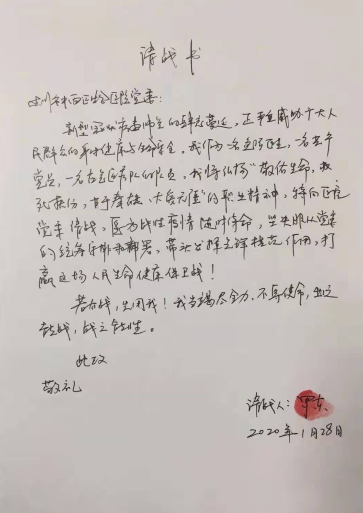 请战书
四川 医院党委：
新型冠状病毒肺炎的肆虐蔓延，正严重威胁广大人
民群众的身体健康与生命安全。我作为一名 医生，一名共产
党员，一名 队员，我将 "敬佑生命，救
死扶伤，甘于奉献，大爱无疆"的职业精神，特向医院
党委请战， 疫情随时待命，坚决服从党委
的统筹安排和部署，带头发挥先锋模范作用，打
赢这场人民生命健康保卫战！
若有战，必用我！我当竭尽全力，不辱使命，
能战，战之能胜。
此致
敬礼
请战人：
2020年1月28日